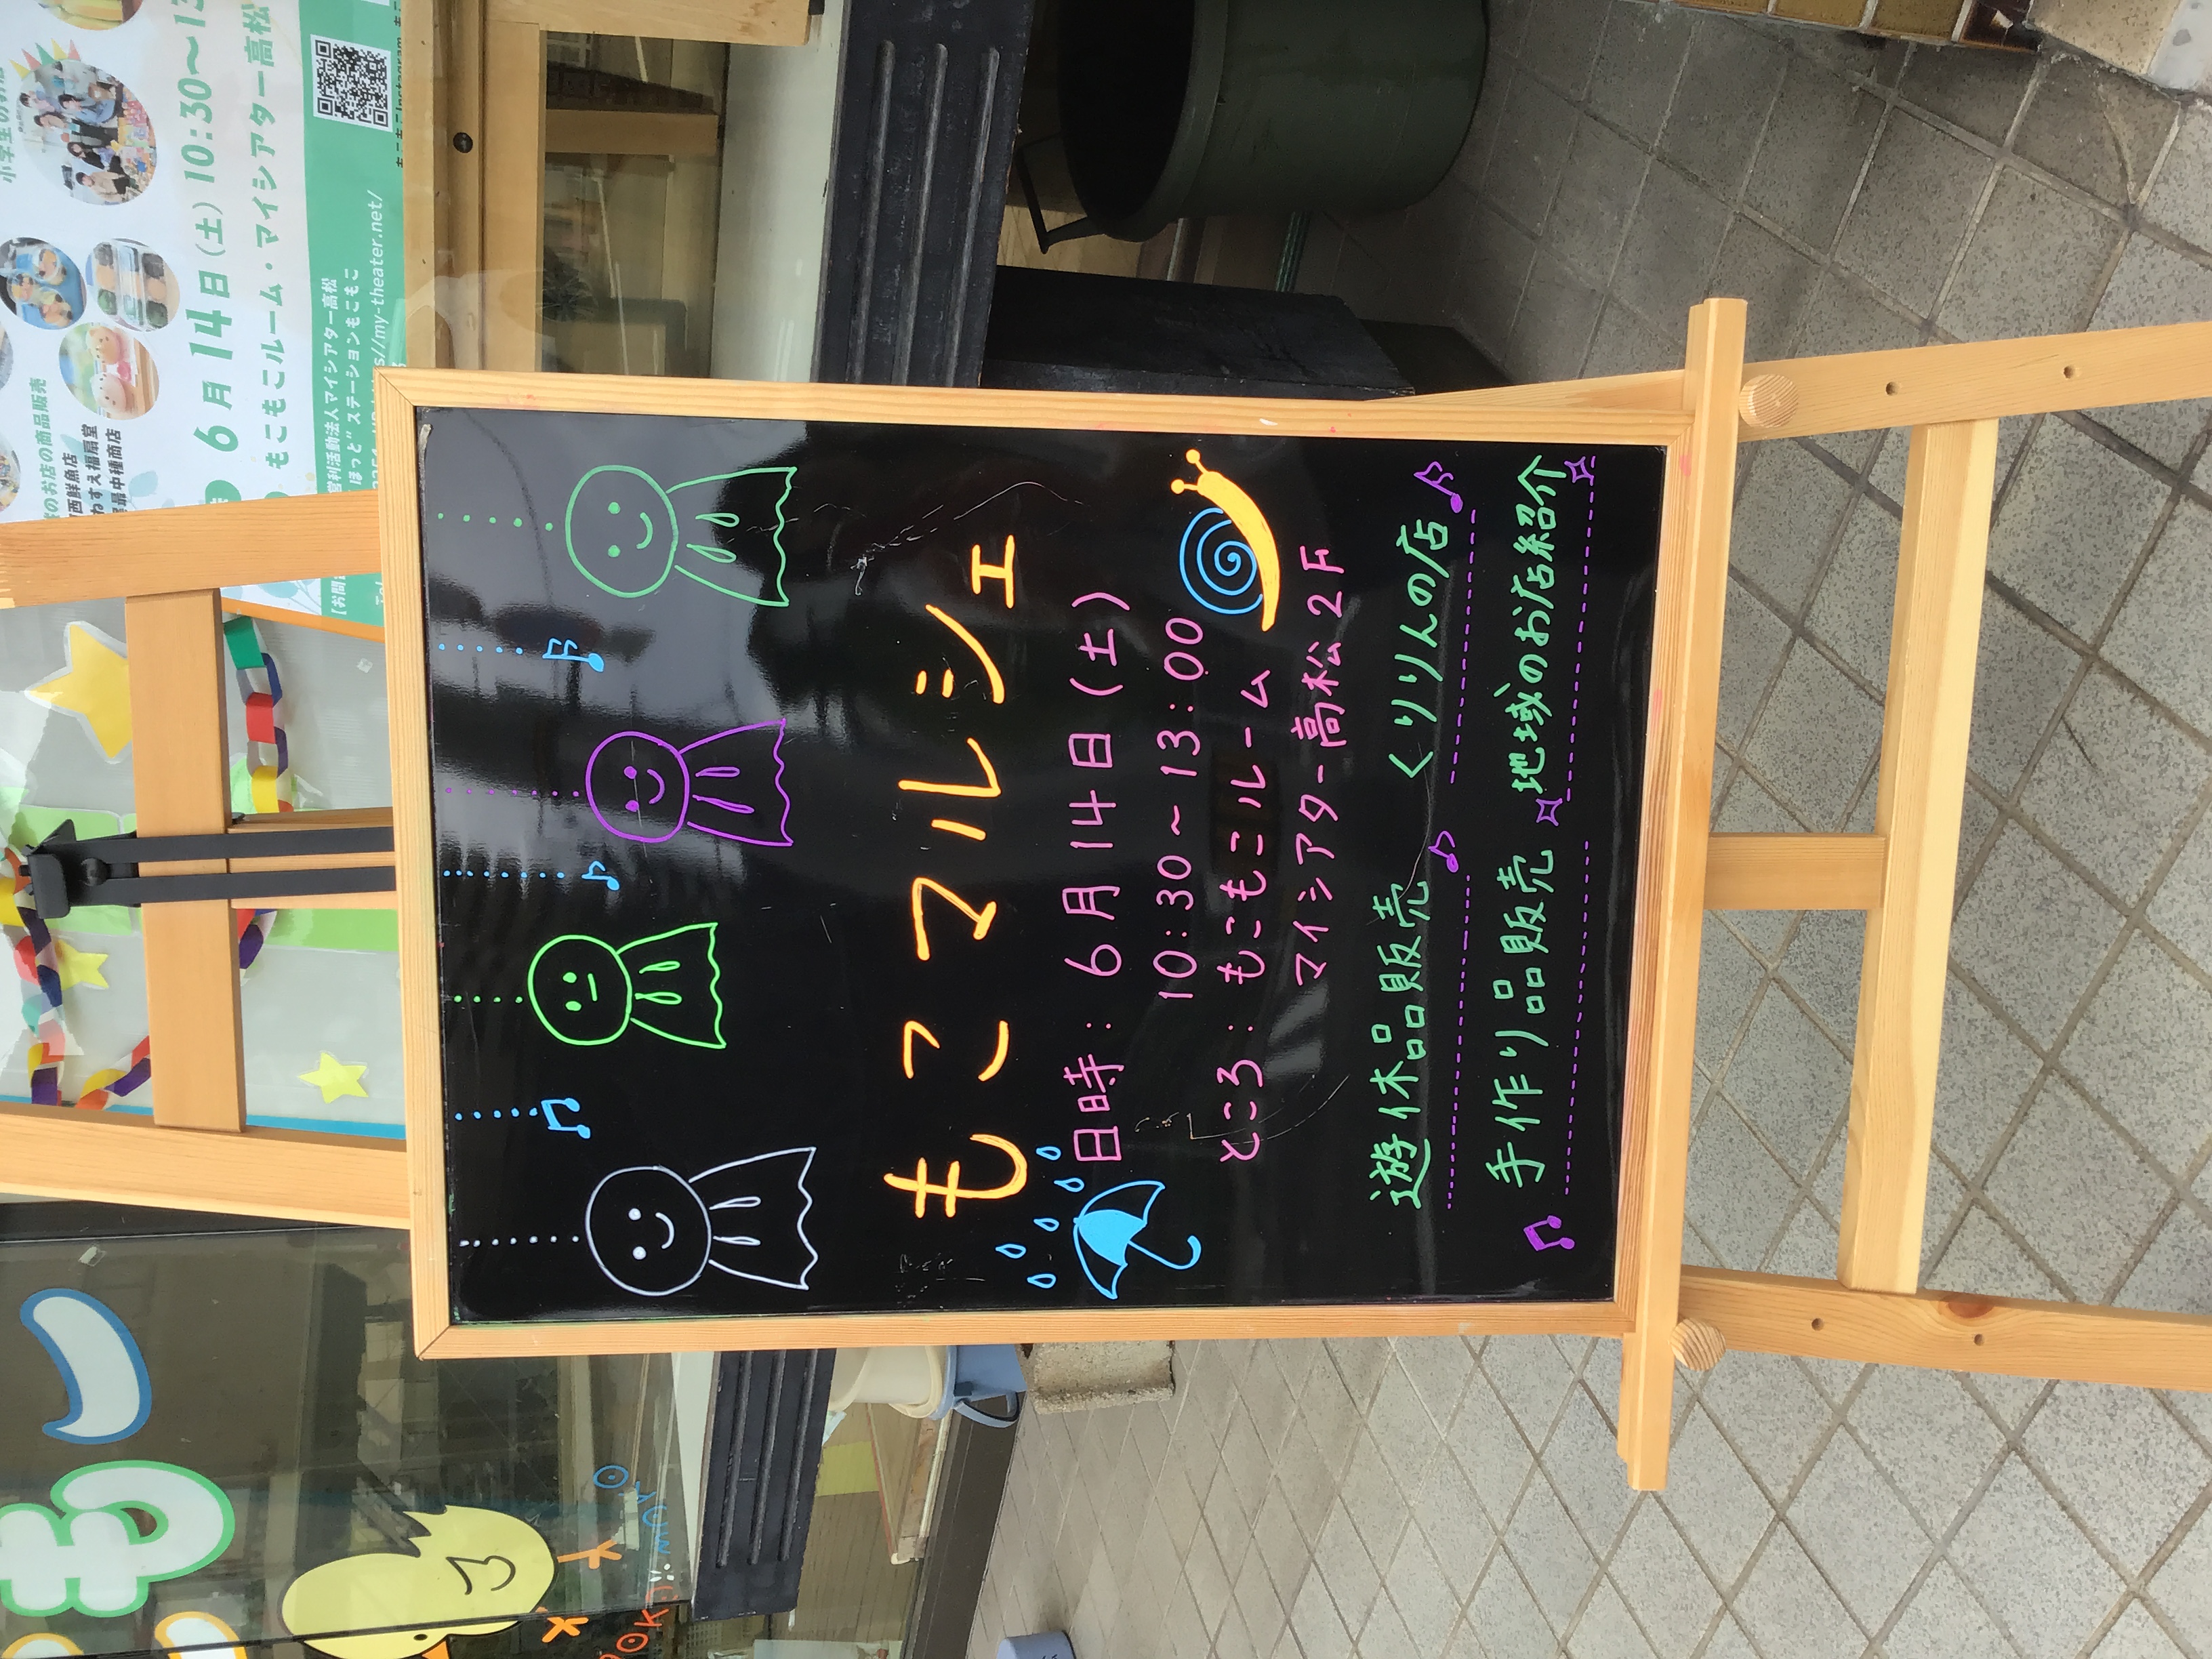 もこマルシェ
日時: 6月14日(土)
10:30~13:00
ところ: もこもこルーム
マイシアター高松2F
遊休品販売
くりりんの店
手作り品販売
地域のお店紹介
のお店の商品販売
西鮮魚店
ねすえ福扇堂
最中種商店
6月14日(土)10:30~13
もこもこルーム・マイシアター高松
営利活動法人マイシアター高松
ほっと"ステーションもこもこ
//my-theater.net/
[お問